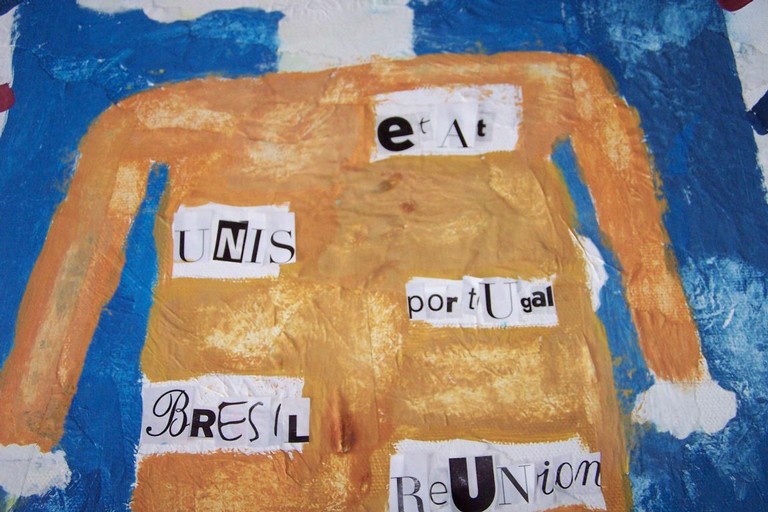 etAt
UNIS
portUgal
BRESIL
ReUNion